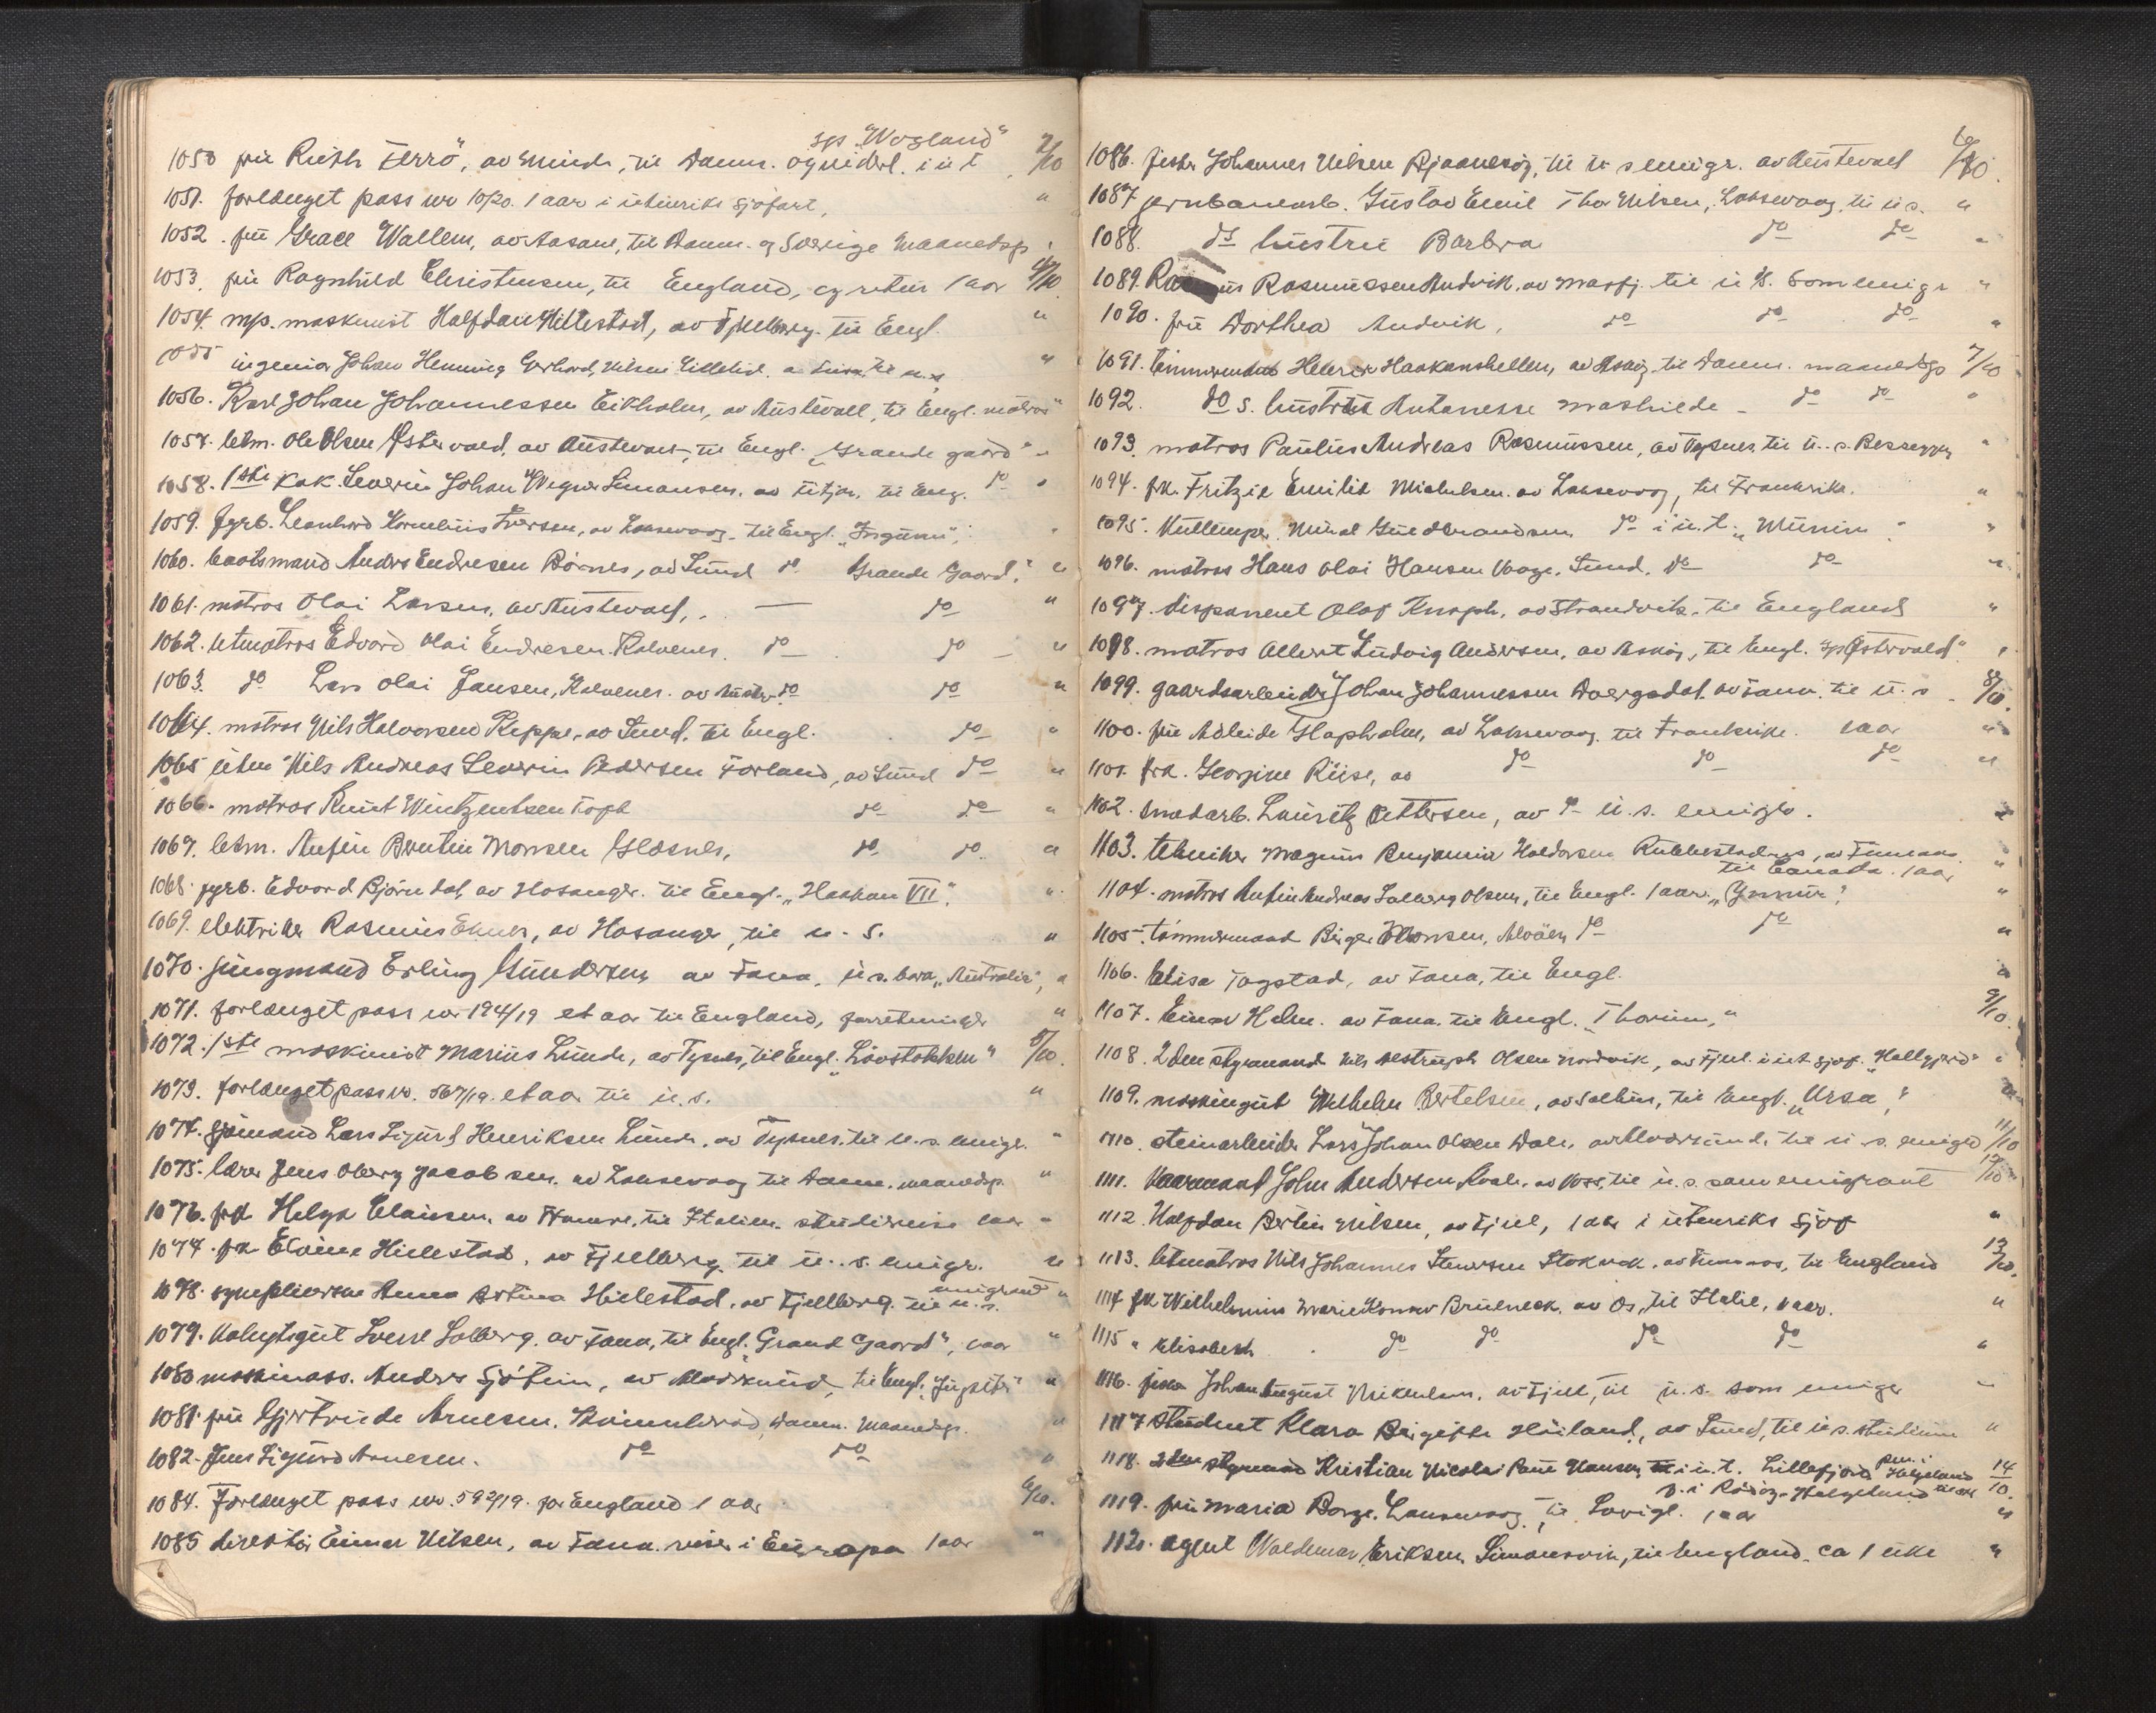 sps. "Wogland"
1050 frü Ruth Terrö, av Minde, til Danm. og i ü t 2/10
1051. forlænget pass nr 10/20. 1 aar i utenriks sjöfart, "
1052. frü Grace Wallem, av Aasane, til Danm. og Sverige maanedsp
1053. frü Ragnhild Christensen, til England, og retur 1 aar 4/10
1054. mp. maskinist Halfdan Hillestad, av Fjelberg. til Engl. "
1055 ingeniør Johan Henning Gerhard Nilsen Lillelid. til u.s "
1056. Karl Johan Johannessen Eikholm, av Austevoll, til Engl. matros "
1057. letm. Ole Olsen Østervold, av Austevoll, til Engl. "Grande gaard" "
1058. 1ste kok. Severin Johan Wegner Simonsen. av til Eng. do "
1059. fyrb. Leonhard Kornelius Iversen, av Laksevaag. til Engl. "Ingunn", "
1060. baatsmand Anders Endresen Börnes, av Sund do Grande Gaard", "
1061. matros Olai Larsen, av Austevoll, — do "
1062. letmatros Edvard Olai Endresen Kalvenes. do — do — "
1063. do Lars Olai Jansen, Kalvenes. av Austev. do do "
1064. matros Nils Halvorsen Keppe, av Sund. til Engl. do "
1065 Nils Andreas Severin Pedersen Forland, av Sund do "
1066. matros Knut Wintzentsen Toft do do "
1067. letm. Anfin Berntin Monsen Glesnes, do do. "
1068. fyrb. Edvard Björndal, av Hosanger. til Engl. "Haakon VII". "
1069. elektriker Rasmus , av Hosanger, til u. s. "
1070. jungmand Erling Gundersen av Fana. u.s. bark "Australia", "
1071. forlænget pass nr 194/19 et aar til England, forretninger "
1072. 1ste maskinist Marius Lunde, av Tysnes, til Engl. "Lövstakken" 5/10.
1073. forlænget pass nr. 567/19. et aar til u. s. "
1074. sjömand Lars Sigurd Henriksen Lunde, av Tysnes. til u. s. emigr. "
1075. lærer Jens Oberg Jacobsen. av Laksevaag til Danm. maanedsp. "
1076. frk Helga Clausen. av Hamre, til Italien. studiereise 1 aar "
1077. frk Elvine Hillestad, av Fjelberg. til u. s. emigr. "
1078. sypleierske Anna Bertina Hillestad, av Fjelberg. til u. s. emigrant "
1079. Kahytsgut Sverre Solberg. av Fana, til Engl. "Grand Gaard", 1 aar "
1080 maskinass. Anders Sjötun, av Alversund, til Engl. "Jupiter" "
1081. frü Gjertrude Arnesen. Danm. maanedsp. "
1082. Jens Sigurd Arnesen. do do "
1084. Forlænget pass nr. 592/19. for England 1 aar 6/10.
1085 direktör Einar Nilsen, av Fana. reise i Europa 1 aar "
1086. fisker Johannes Nilsen Bjaanesöy, til u s emigr. av Austevoll 6/10.
1087 jernbanearb. Gustav Emil Thor Nilsen, Laksevaag. til u s. "
1088. ds hustru Barbra do do "
1089. Rasmus Rasmussen Andvik. av Masfj. til u S. som emigr "
1090. frü Dorthea Andvik, do do do "
1091. tömmermand Haakonshellen, av Askøy. til Danm. maanedsp 7/10
1092. do s. hustru Antonesse Mathilde - do do "
1093. matros Paulus Andreas Rasmussen, av Tysnes, til u. s. Besseggen "
1094. frk. Fritzie Emilie Michelsen. av Laksevaag, til Frankrike. "
1095. Kullemper. Guldbrandsen do i u. t. "Munin". "
1096. matros Hans Olai Hansen Vaage. Sund. do do "
1097. disponent Olaf Knoph. av Strandvik. til England "
1098. matros Albert Ludvig Andersen, av Askøy, til Engl. sps Østervold" "
1099. gaardsarbeider Johan Johannessen Dvergsdal. av Fana. til u. s 8/10.
1100. frü Adleide Hopholm, av Laksevaag. til Frankrike. 1 aar "
1101. frk. Georgine Riise, av do do do "
1102. Lauritz Pettersen, av u. s. emigr.
1103. tekniker Magnus Benjamin Haldorsen Rubbestadnes, av Finnaas. "
til Canada. 1 aar
1104. matros Anfin Andreas Solberg Olsen, til Engl. 1 aar. "Gunnar". "
1105. tömmermand Birger Monsen, Alvöen do do "
1106. Elisa Fagstad, av Fana, til Engl. "
1107. Einar Holm. av Fana. til Engl. "Thorunn," 9/10.
1108. 2den styrmand Nils Olsen Nordvik, av Fjell. i ut sjof. "Hallgjerd" "
1109. maskingut Wilhelm Bertelsen, til Engl. "Ursa", "
1110. steinarbeider Lars Johan Olsen Dale, av Alversund. til u. s. emigr 11/10
1111. Vaarmand John Andersen Kvale. av Voss, til u. s. som emigrant 12/10
1112. Halfdan Bertin Nilsen, av Fjell, 1 aar i utenriks sjof "
1113. letmatros Nils Johannes Stokvik. av Finnaas, til England 13/10.
1114 frk Wilhelmine Marie Brüneck. av Os, til Italie, 1 aar. "
1115 " Elisabeth. do do do do "
1116. Johan August Mikkelsen. av Fjell, til u. s. som emigr "
1117 student Klara Birgitte Höiland, av Sund, til u s. studium "
1118. 2den styrmand Kristian Nicolai Hansen, i u. t. Lillefjord 14/10.
f. i Rödöy Helgeland
1119. frü Maria Borge. Laksevaag. til 1 aar "
1120. agent Waldemar Eriksen. Simonsvik, til England. ca 1 uke "